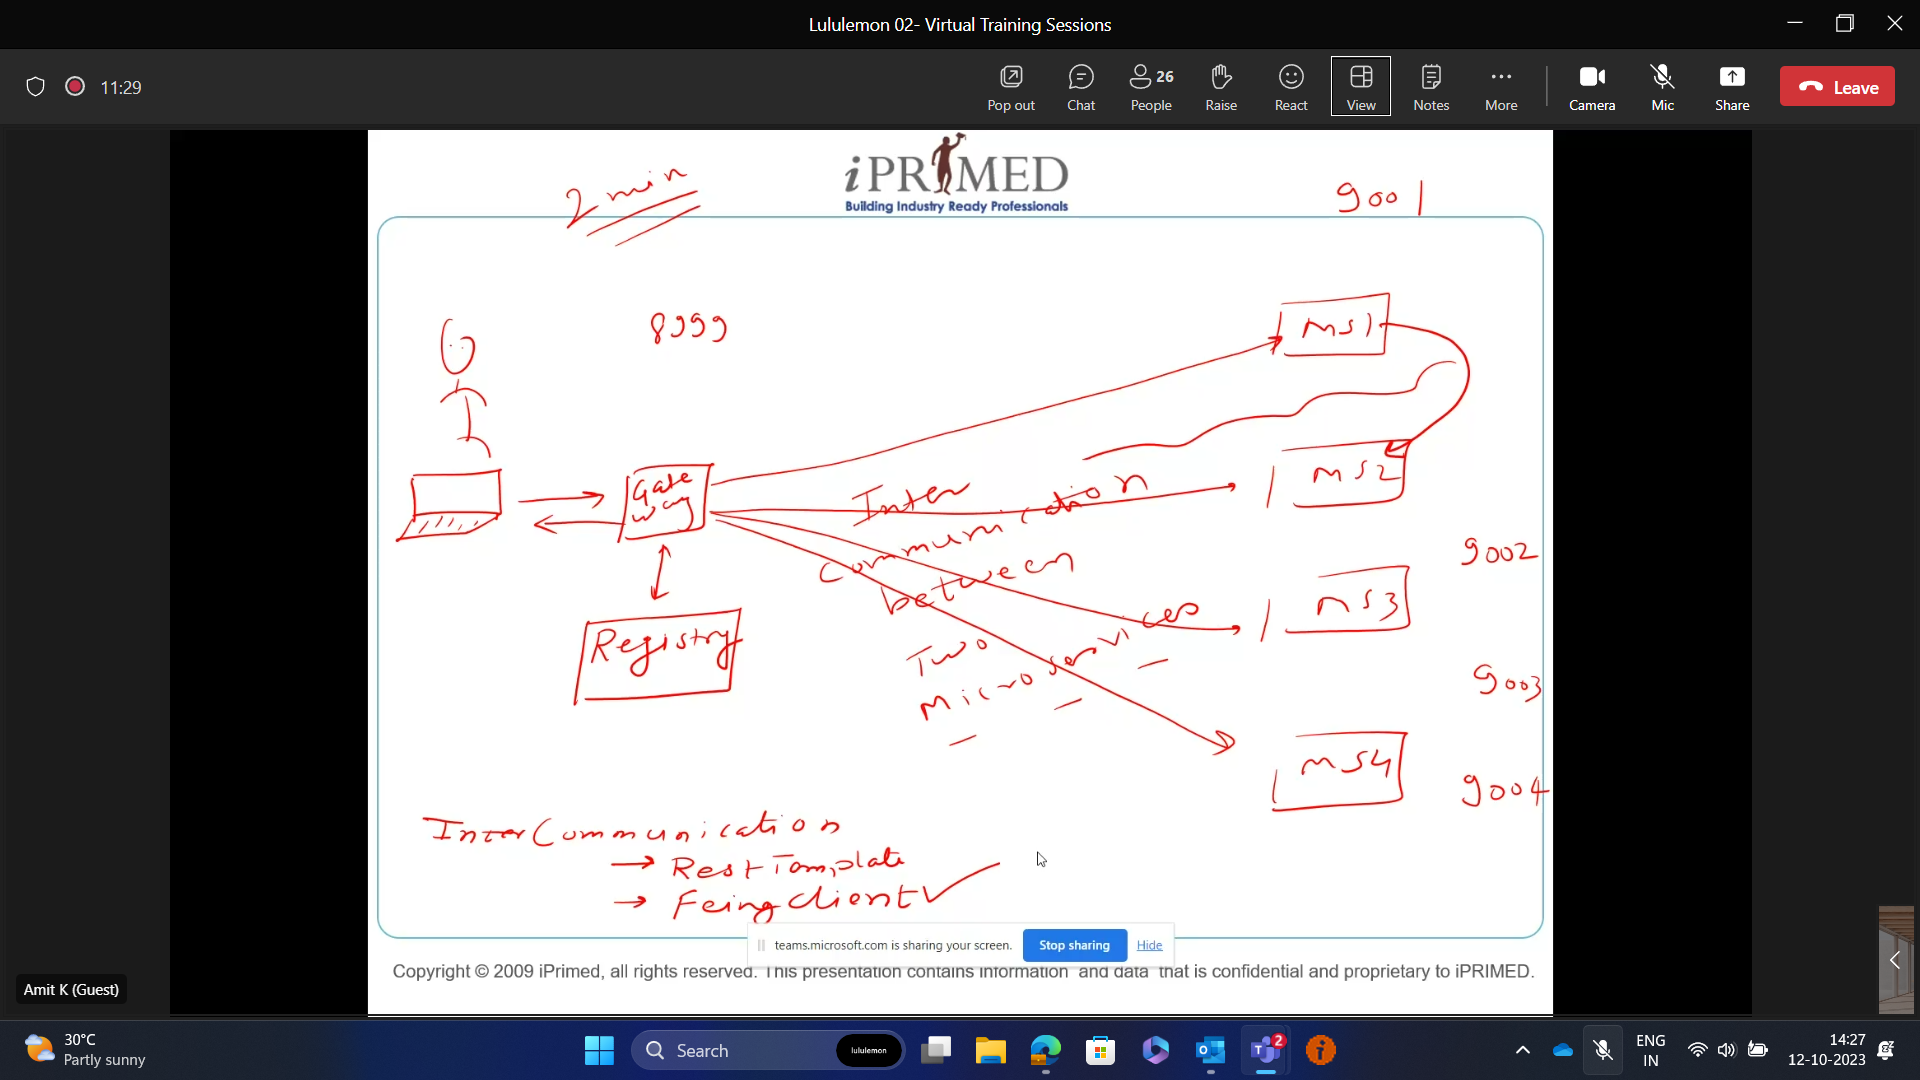 Lululemon 02- Virtual Training Sessions
11:29
Pop out
Chat
26
People
Raise
React
View
Notes
More
Camera
Mic
Share
Leave
iPRIMED
Building Industry Ready Professionals
2 min
9001
8999
MS1
MS2
Gate
way
Inter
Communication
between
Two
Microservices
9002
MS3
Registry
9003
MS4
9004
InterCommunication
→ RestTemplate
→ FeingClient ✓
teams.microsoft.com is sharing your screen.
Stop sharing
Hide
Copyright © 2009 iPrimed, all rights reserved. This presentation contains information and data that is confidential and proprietary to iPRIMED.
Amit K (Guest)
30°C
Partly sunny
Search
lululemon
2
ENG
IN
14:27
12-10-2023